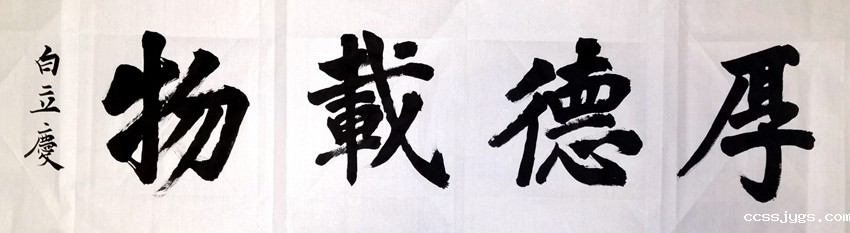 厚德載物
白立慶
ccssjygs.com